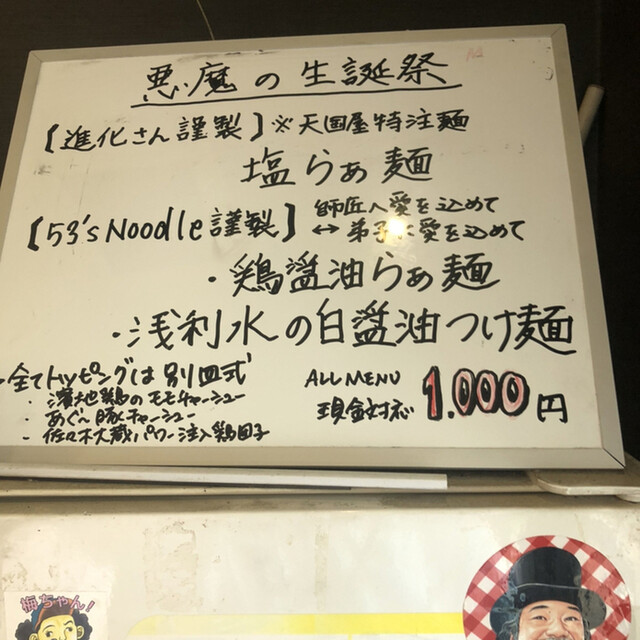 悪魔の生誕祭
【進化さん謹製】※天国屋特注麺
塩らぁ麺
【53's Noodle謹製】師匠へ愛を込めて
↔弟子に愛を込めて
・鶏醤油らぁ麺
・浅利水の白醤油つけ麺
・全てトッピングは別皿式
・濃地鶏のモモチャーシュー
・あぐー豚チャーシュー
・佐々木大蔵パワー注入鶏団子
ALL MENU
現金対応 1.000円
梅ちゃん!